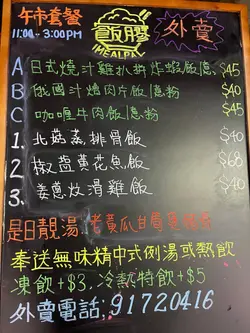 午市套餐
11:00-3:00PM
飯醪
1MEALPAL
外賣
A 日式燒汁雞扒拼炸蝦飯/意 $45
B 俄國汁燴肉片飯/意粉 $40
C 咖喱牛肉飯/意粉 $40
1. 北菇蒸排骨飯 $40
2. 椒鹽黃花魚飯 $68
3. 姜蔥放滑雞飯 $40
是日靚湯:老黃瓜
奉送無味精中式例湯或熱飲
凍飲+$3, 冷熱特飲+$5
外賣電話:91720416